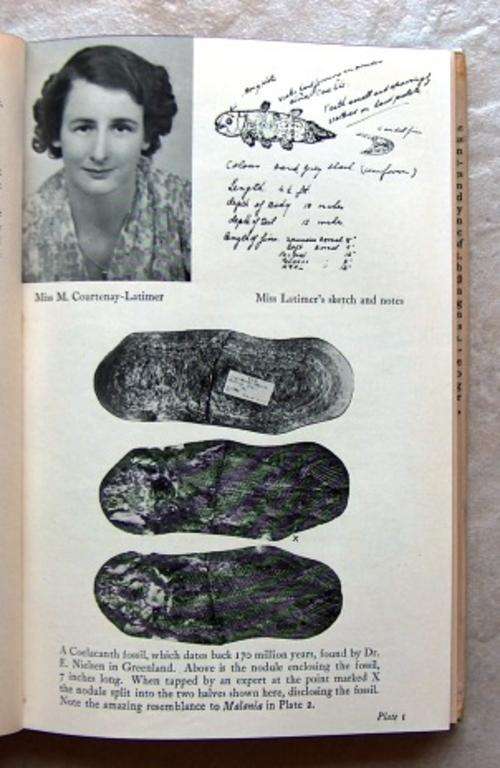 Miss M. Courtenay-Latimer
Miss Latimer's sketch and notes
Colour hard grey steel (uniform)
Length 4½ ft.
depth of Body 18 inches
depth of tail 12 inches
X
A Coelacanth fossil, which dates back 170 million years, found by Dr.
E. Nielsen in Greenland. Above is the nodule enclosing the fossil,
7 inches long. When tapped by an expert at the point marked X
the nodule split into the two halves shown here, disclosing the fossil.
Note the amazing resemblance to Malania in Plate 2.
Plate 1